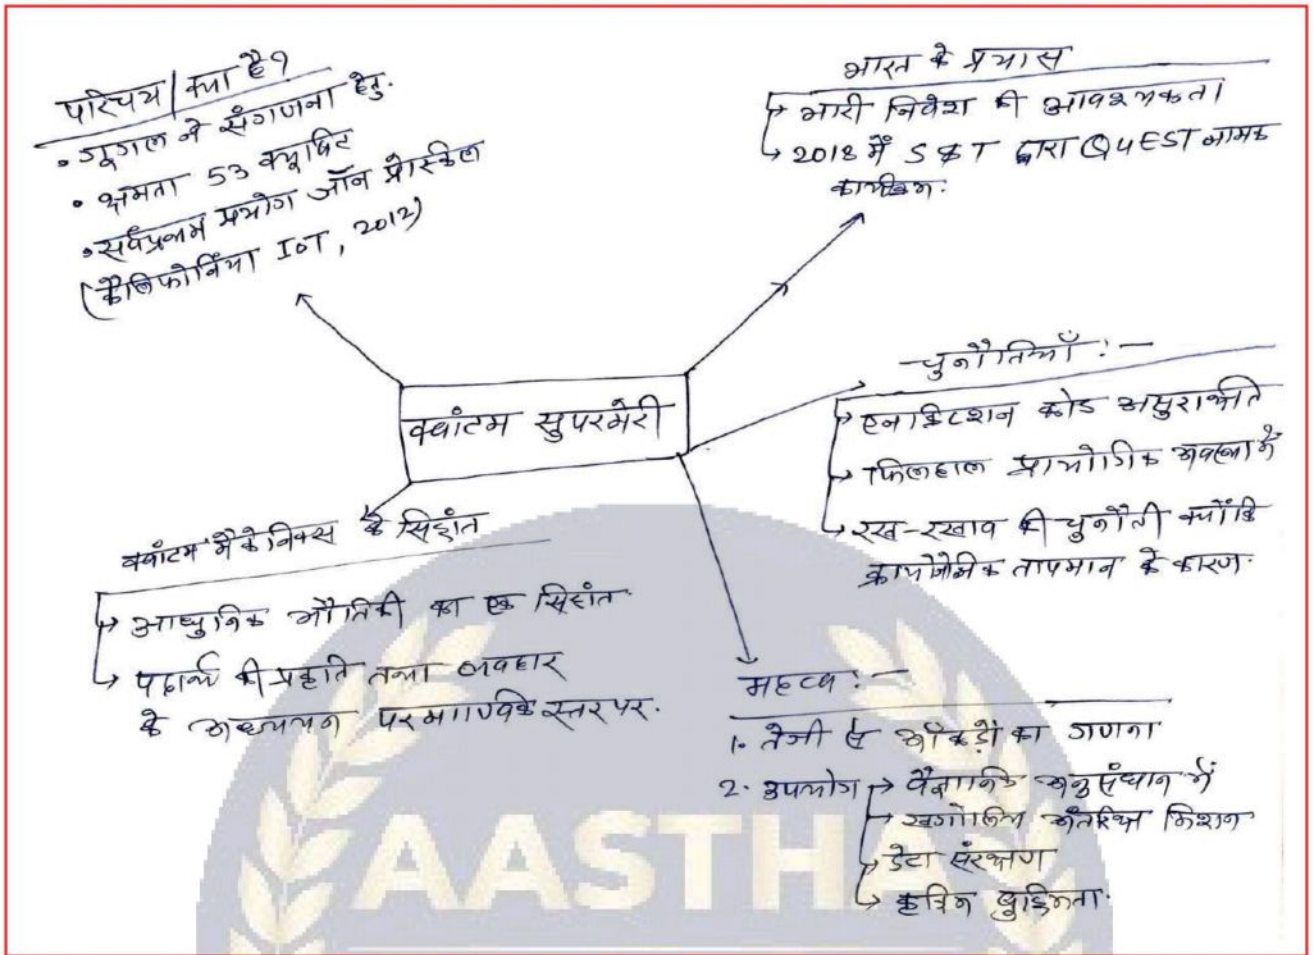 परिचय/क्या है?
• गूगल ने संगणना हेतु.
• क्षमता 53 क्यूबिट
• सर्वप्रथम प्रयोग जॉन प्रेस्किल
(कैलिफोर्निया IoT, 2012)
भारत के प्रयास
→ भारी निवेश की आवश्यकता
→ 2018 में S&T द्वारा QUEST नामक
कार्यक्रम.
क्वांटम सुपरमेरी
चुनौतियाँ :-
→ एनक्रिप्टेशन कोड असुरक्षित
→ फिलहाल प्रायोगिक अवस्था में
→ रख-रखाव की चुनौती क्योंकि
क्रायोजेनिक तापमान के कारण.
क्वांटम मैकेनिक्स के सिद्दांत
→ आधुनिक भौतिकी का एक सिद्दांत.
→ पदार्थ की प्रकृति तथा व्यवहार
के अध्ययन परमाण्विक स्तर पर.
महत्व :-
1. तेजी से आँकड़ों का गणना
2. उपयोग → वैज्ञानिक अनुसंधान में
→ खगोलिय अंतरिक्ष मिशन
→ डेटा संरक्षण
→ कृत्रिम बुद्धिमता.
AASTHA